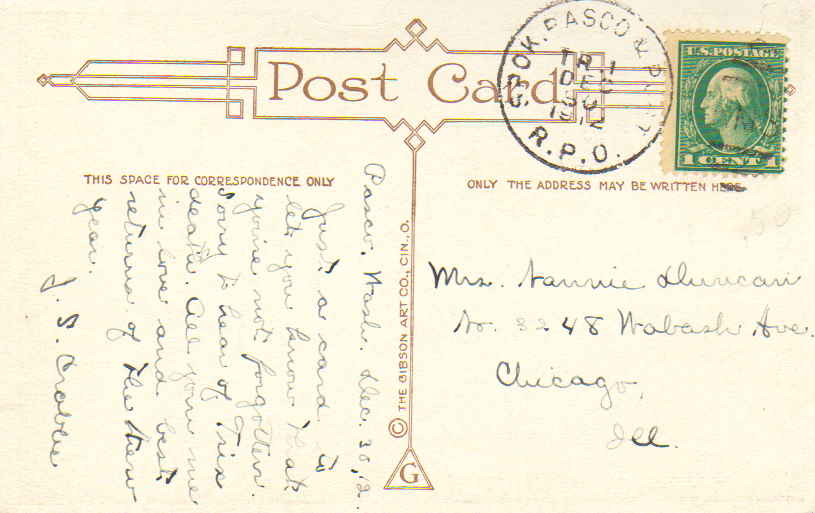 Post Card
SPOK. PASCO & PORT.
TR 1
DEC
30
1912
R.P.O.
U.S. POSTAGE
1 CENT 1
THIS SPACE FOR CORRESPONDENCE ONLY
ONLY THE ADDRESS MAY BE WRITTEN HERE
Pasco, Wash. Dec. 30, 12.
Just a card to
let you know that
youre not forgotten.
Sorry to hear of Trix
death. All join me
in love and best
returns of the New
Year.
J. S. Crabbe
© THE GIBSON ART CO., CIN., O.
G
Mrs. Nannie Duncan
No. 3248 Wabash Ave.
Chicago,
Ill.
.50